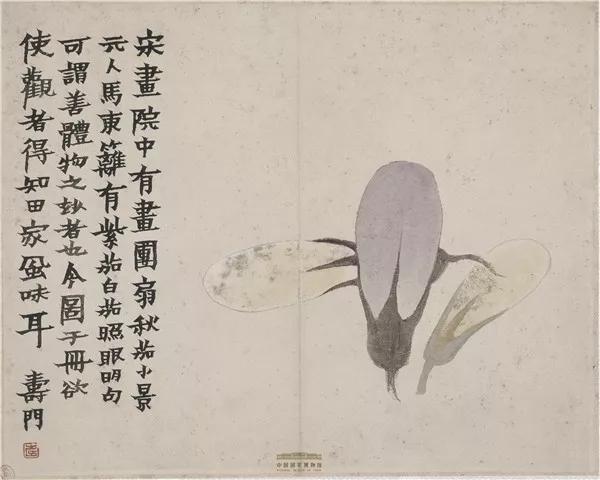 宋畫院中有畫團扇秋茄小景
元人馬東籬有紫茄白茄照眼明句
可謂善體物之妙者也今圖于冊欲
使觀者得知田家風味耳
壽門
中国国家博物馆
NATIONAL MUSEUM OF CHINA